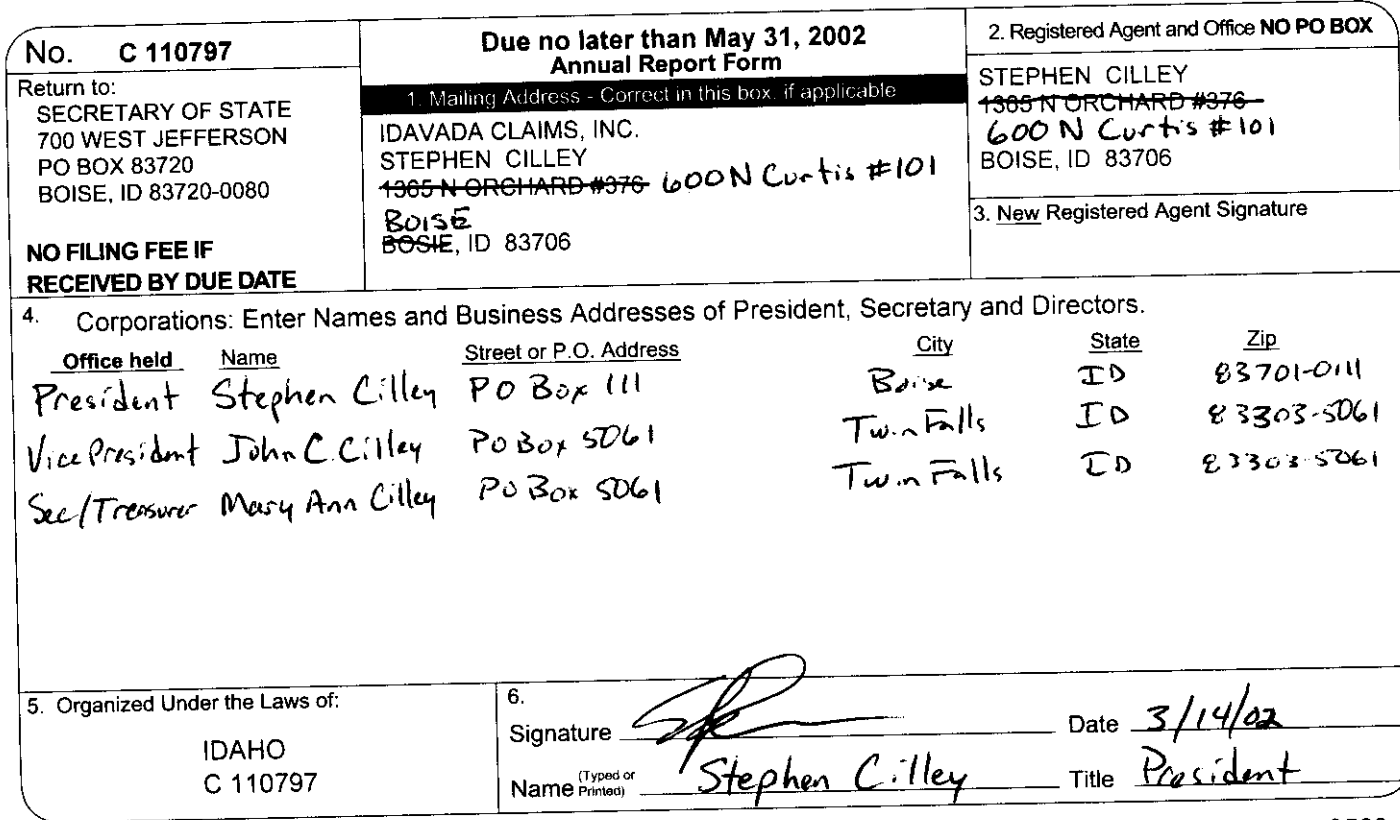 No. C 110797
Return to:
SECRETARY OF STATE
700 WEST JEFFERSON
PO BOX 83720
BOISE, ID 83720-0080
NO FILING FEE IF
RECEIVED BY DUE DATE
Due no later than May 31, 2002
Annual Report Form
1. Mailing Address - Correct in this box, if applicable
IDAVADA CLAIMS, INC.
STEPHEN CILLEY
1365 N ORCHARD #376 600 N Curtis #101
BOISE
BOSIE, ID 83706
2. Registered Agent and Office NO PO BOX
STEPHEN CILLEY
1365 N ORCHARD #376
600 N Curtis #101
BOISE, ID 83706
3. New Registered Agent Signature
4. Corporations: Enter Names and Business Addresses of President, Secretary and Directors.
Office held Name Street or P.O. Address City State Zip
President Stephen Cilley PO Box 111 Boise ID 83701-0111
Vice President John C. Cilley PO Box 5061 Twin Falls ID 83303-5061
Sec/Treasurer Mary Ann Cilley PO Box 5061 Twin Falls ID 83303-5061
5. Organized Under the Laws of:
IDAHO
C 110797
6.
Signature Date 3/14/02
Name (Typed or Printed) Stephen Cilley Title President